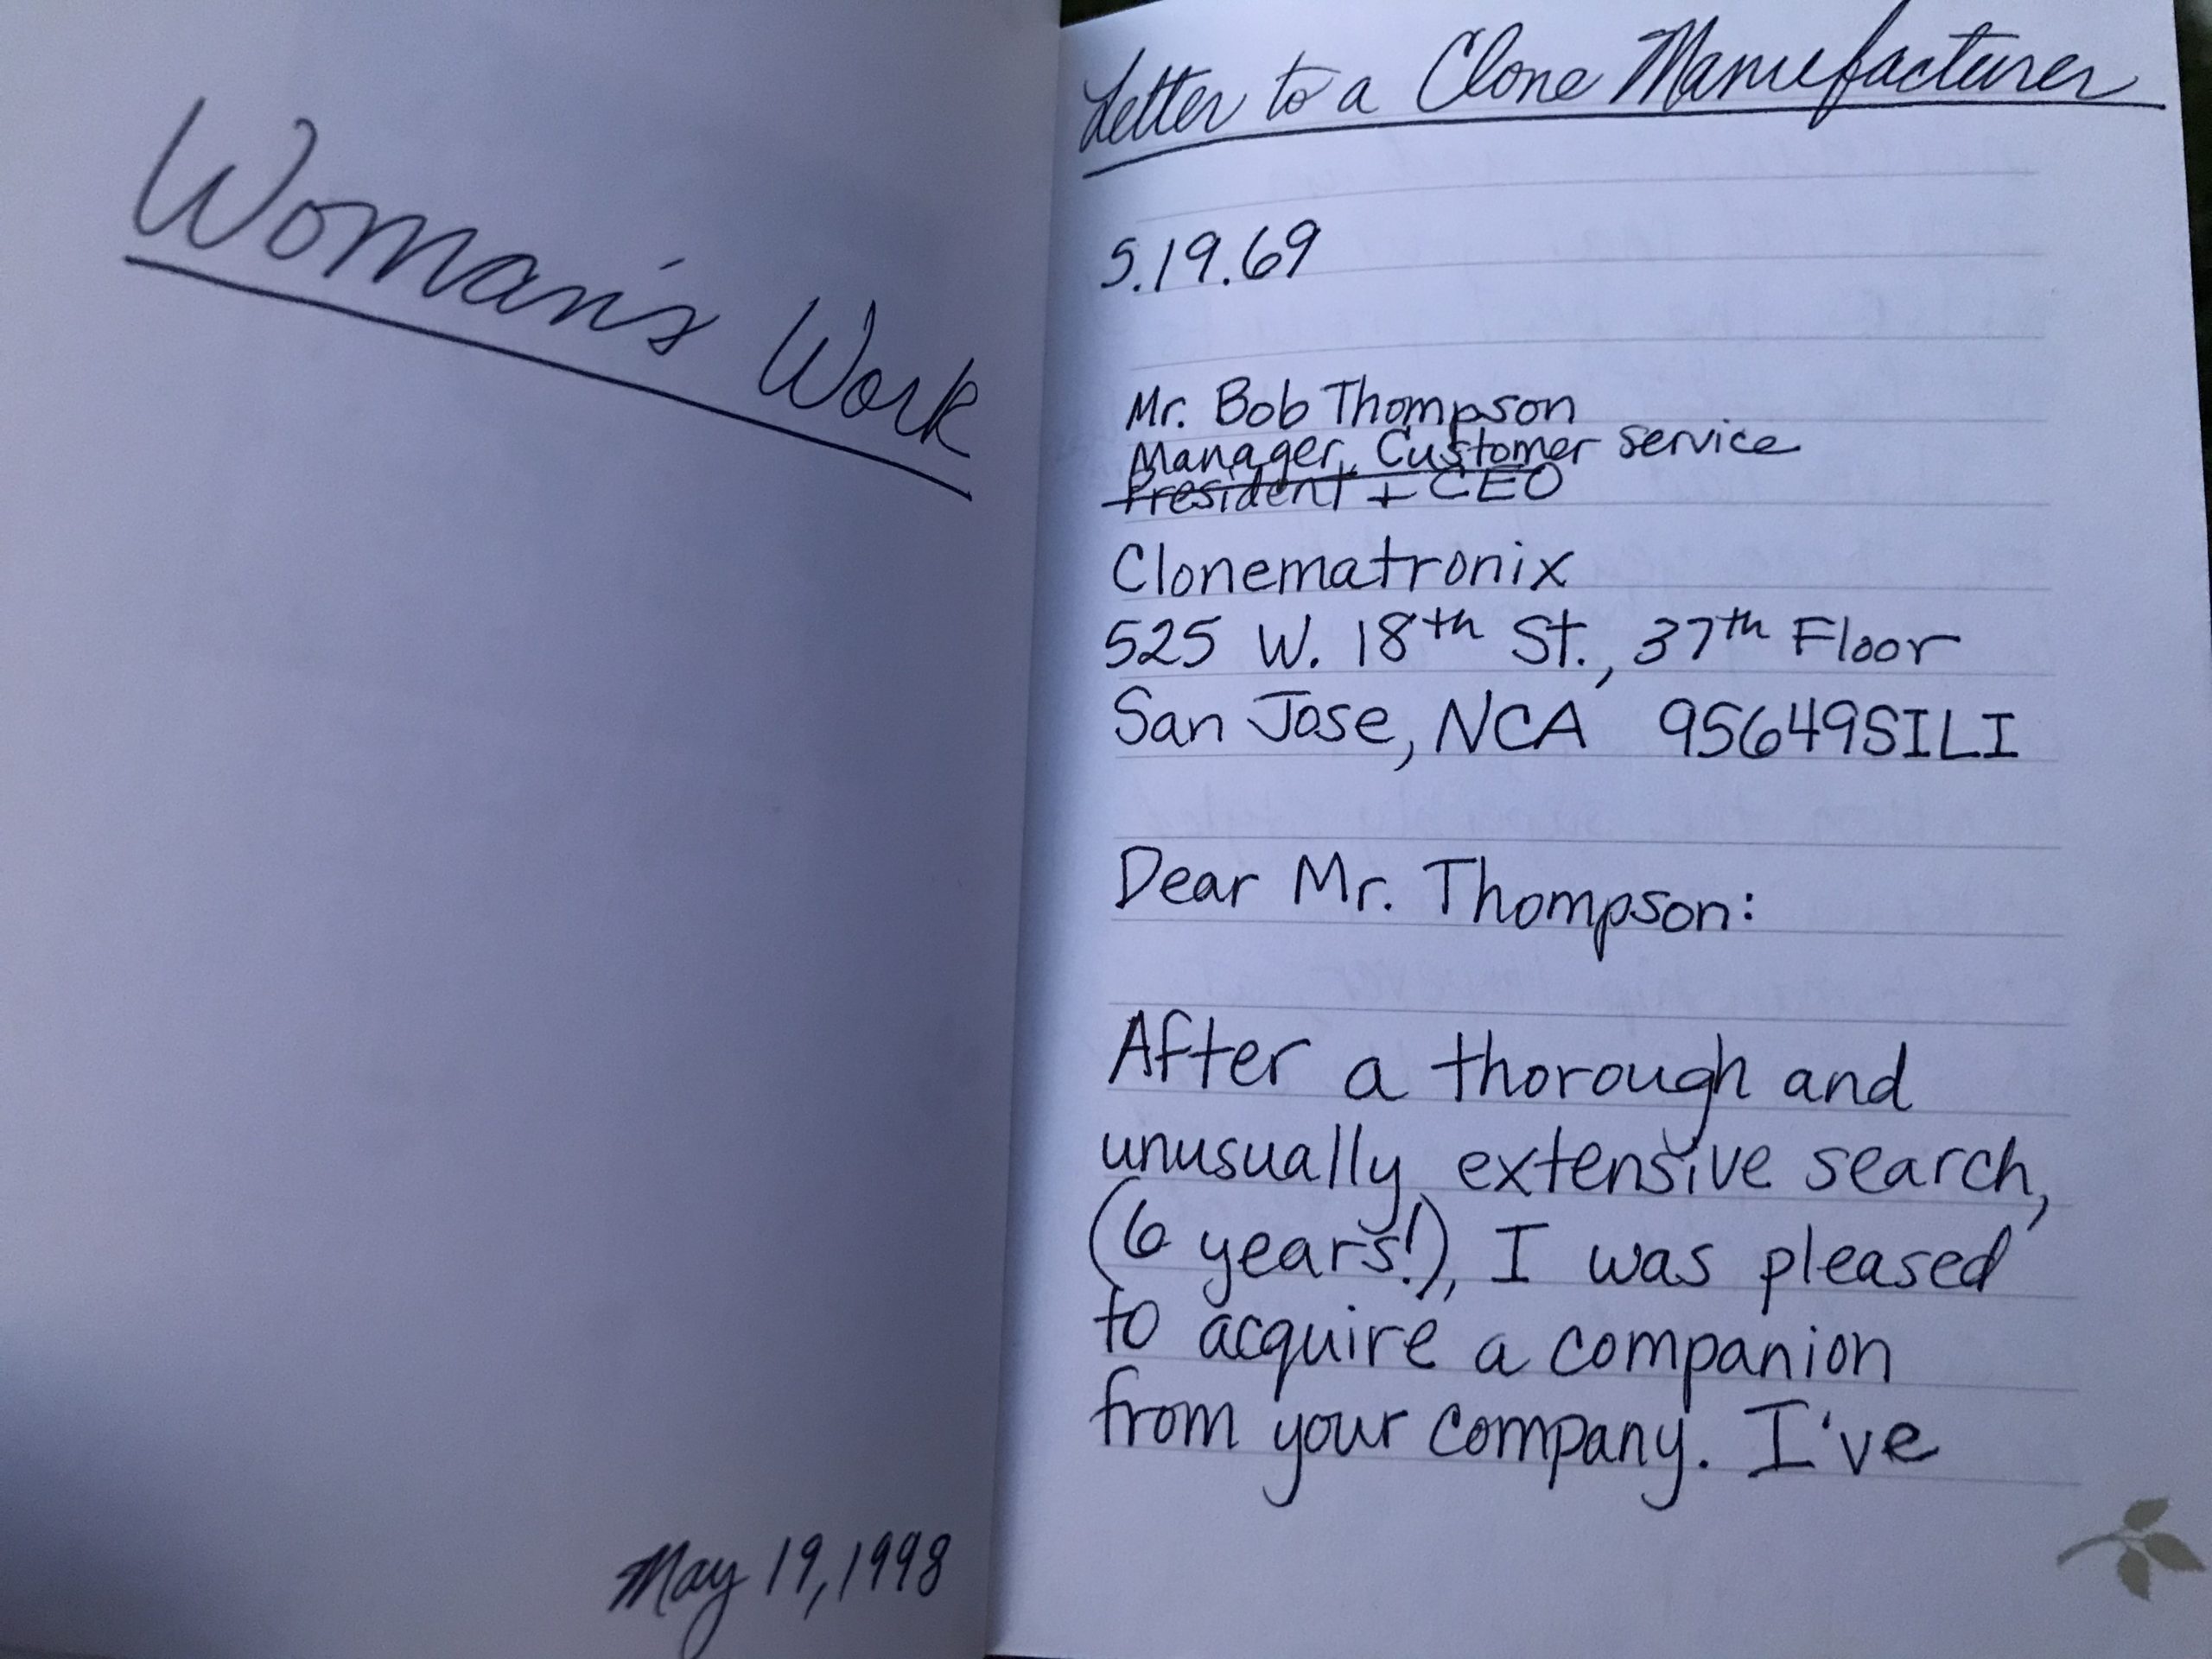 Woman's Work
May 19, 1998
Letter to a Clone Manufacturer
5.19.69
Mr. Bob Thompson
Manager, Customer Service
President + CEO
Clonematronix
525 W. 18th St., 37th Floor
San Jose, NCA 95649SILI
Dear Mr. Thompson:
After a thorough and
unusually extensive search,
(6 years!), I was pleased
to acquire a companion
from your company. I've